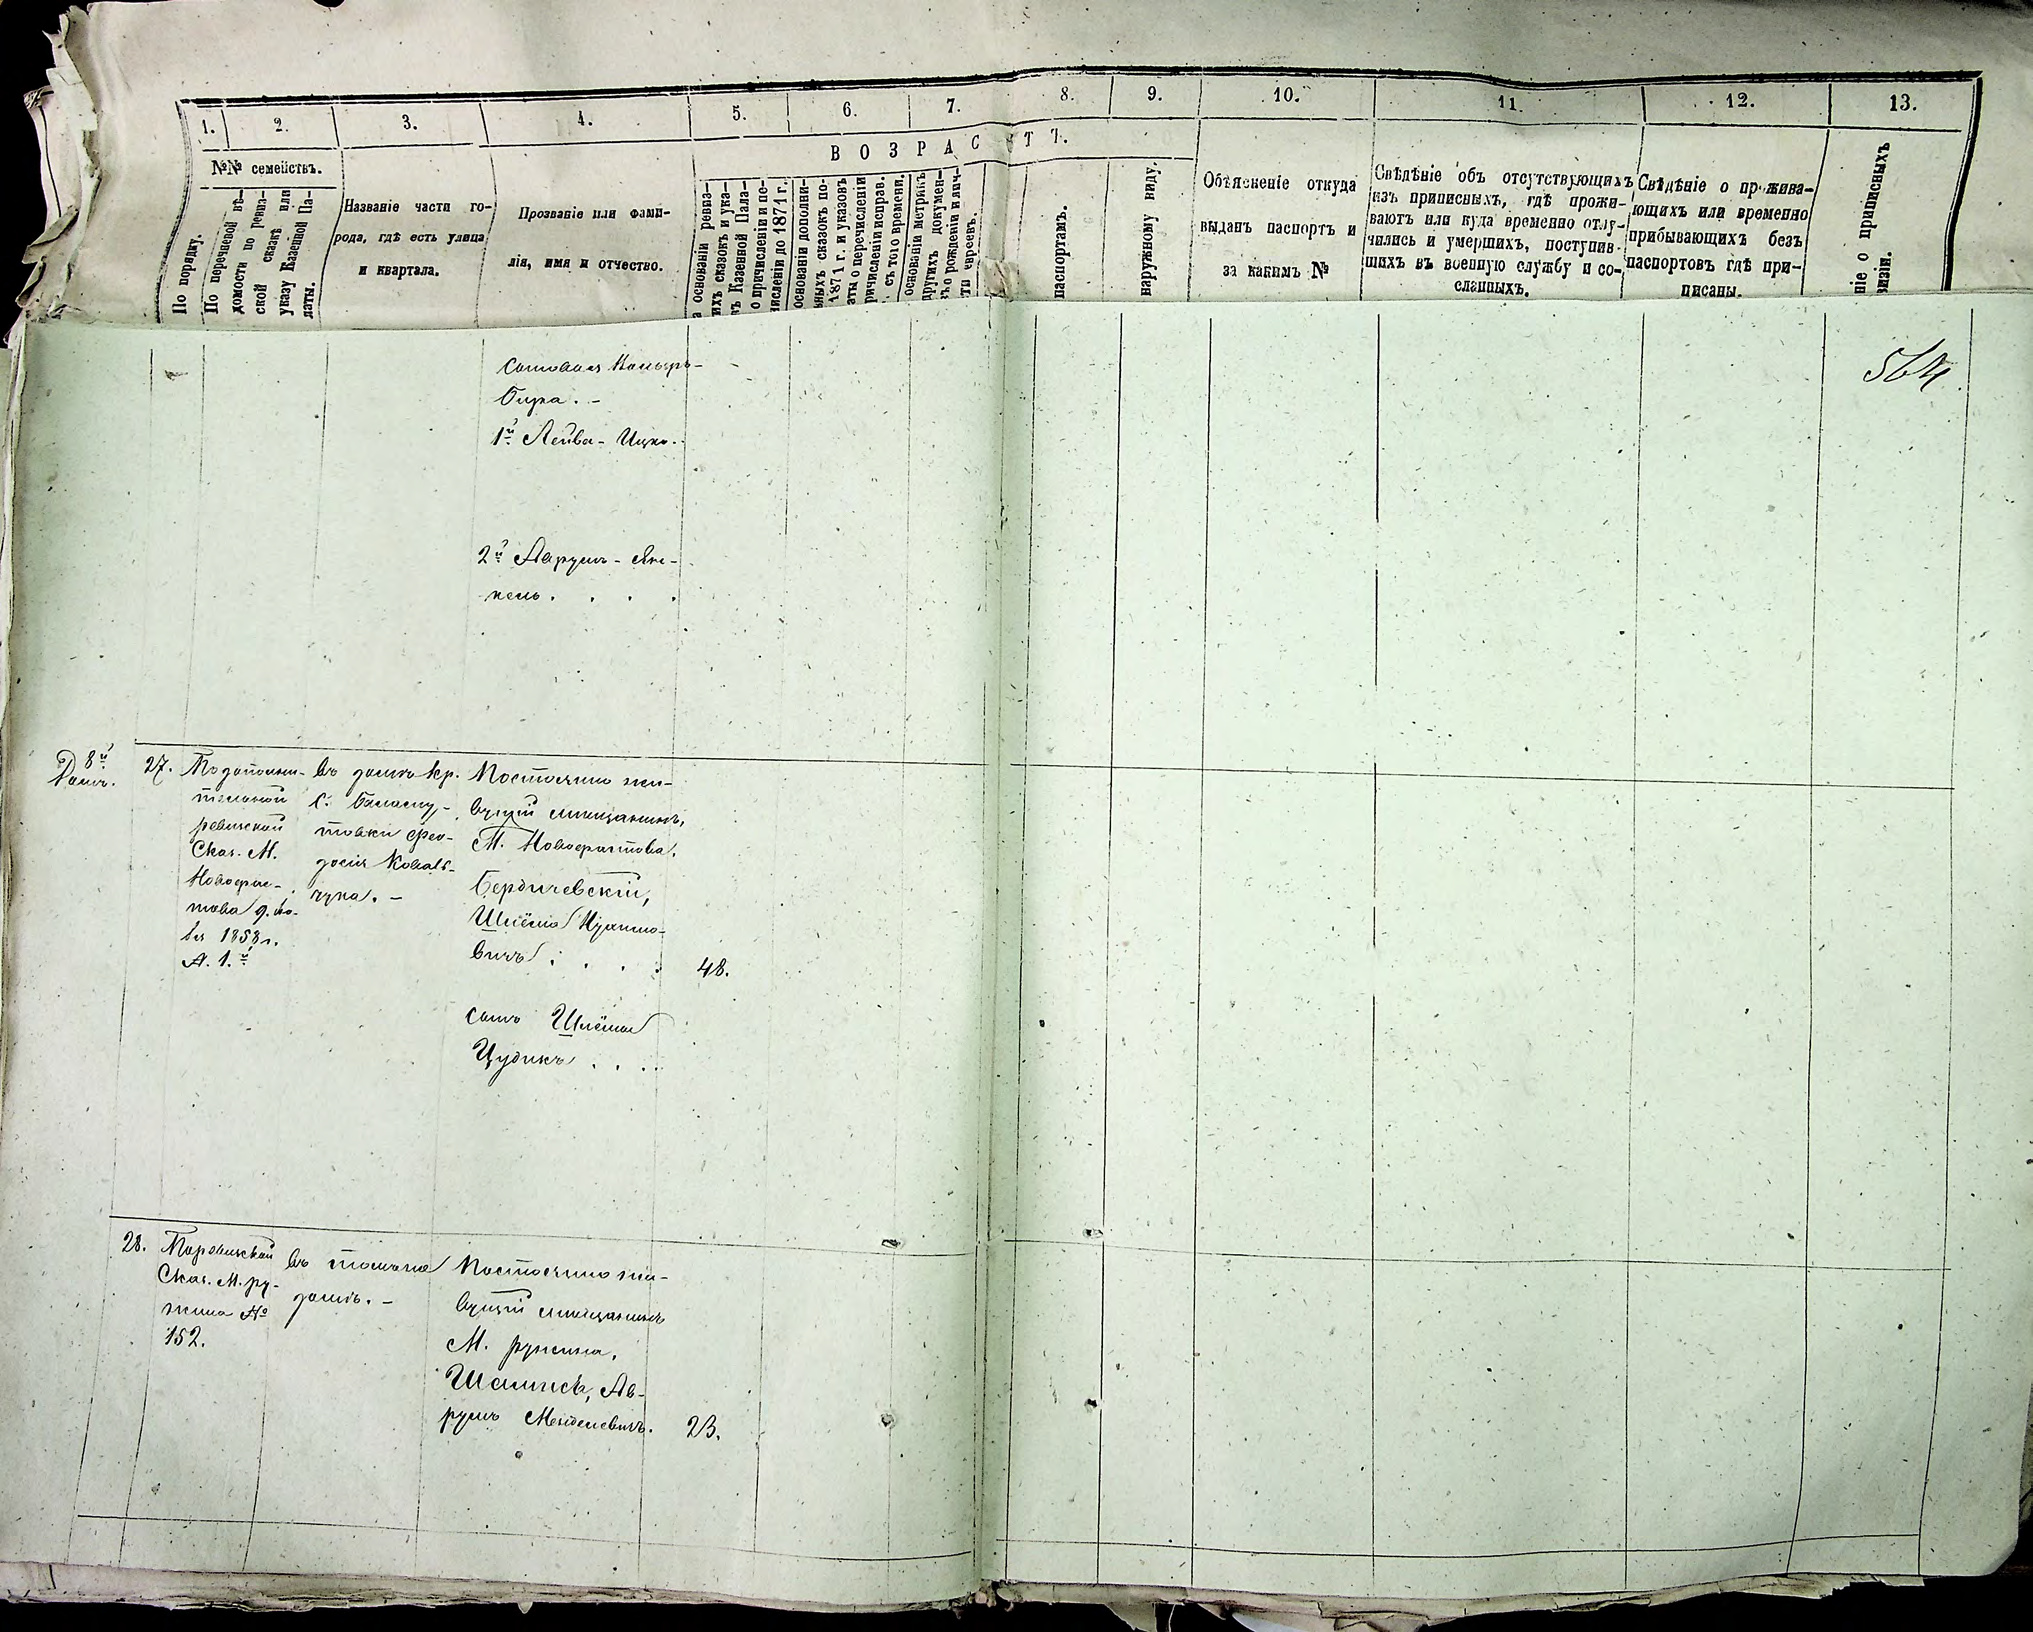 1.
2.
3.
4.
5.
6.
7.
8.
9.
10.
11.
12.
13.
№№ семействъ.
ВОЗРАСТЪ.
По порядку.
По перечневой вѣ-
домости по ревиз-
ской сказкѣ или
указу Казенной Па-
латы.
Названіе части го-
рода, гдѣ есть улица
и квартала.
Прозваніе или фами-
лія, имя и отчество.
а основаніи ревиз-
ихъ сказокъ и ука-
въ Казенной Пала-
о причисленіи и по-
численіи до 1871 г.
основаніи дополни-
ьныхъ сказокъ по-
1871 г. и указовъ
аты о перечисленіи
ричисленіи исправ.
съ того времени.
основаніи метрикъ
другихъ докумен-
ъ о рожденіи и лич-
ти евреевъ.
паспортамъ.
наружному виду.
Объясненіе откуда
выданъ паспортъ и
за какимъ №
Свѣдѣніе объ отсутствующихъ
изъ приписныхъ, гдѣ прожи-
ваютъ или куда временно отлу-
чились и умершихъ, поступив-
шихъ въ военную службу и со-
сланныхъ.
Свѣдѣніе о прожива-
ющихъ или временно
прибывающихъ безъ
паспортовъ гдѣ при-
писаны.
ніе о приписныхъ
визіи.
564.
сыновья
1й Лейба - Ицко.
2й Аврумъ - Ян-
кель . . . .
8й
Домъ.
27.
По дополни-
тельной
ревизской
Сказ. М.
Новофас-
това 9. Но-
бя 1858 г.
№. 1.й
въ домѣ кр.
с. Баламу-
товки Фео-
досія Коваль-
чука. -
Постоянно жи-
вущій мещанинъ,
М. Новофастова,
Бердичевскій,
Шлёма
вичъ . . . .
48.
сынъ Шлёмы
Цудикъ . . . .
28.
По ревизской
Сказ. М. Ру-
жина №
152.
въ томъ же
домѣ. -
Постоянно жи-
вущій мещанинъ
М. Ружина,
Шалинск, Ав-
румъ Менделевичъ.
23.